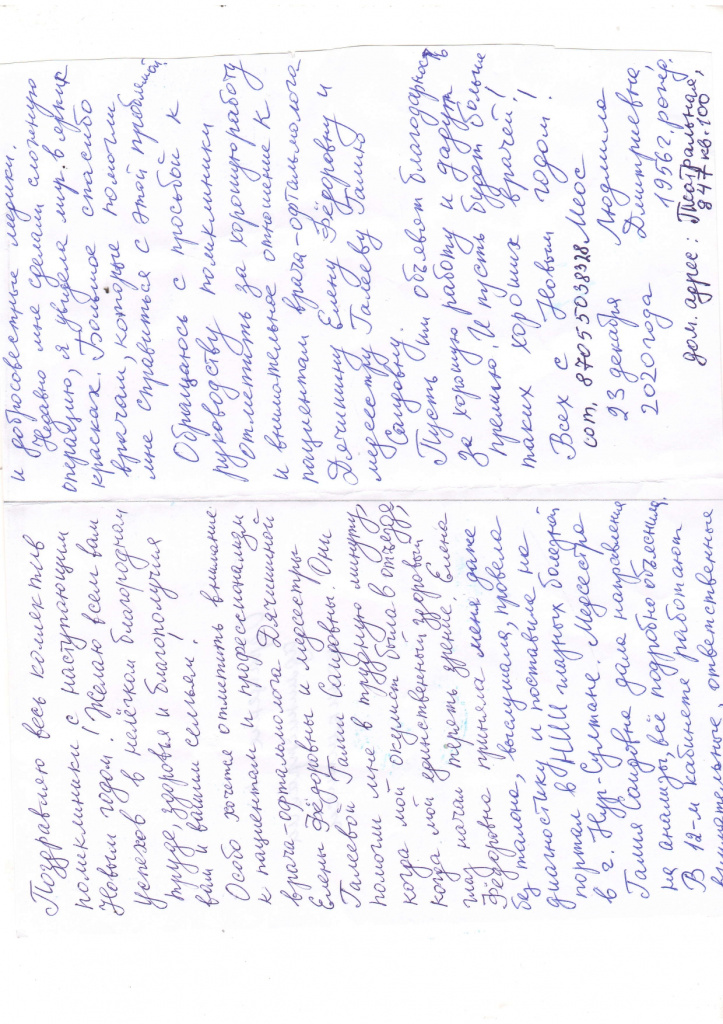 Поздравляю весь коллектив
поликлиники с наступающим
Новым годом! Желаю всем вам
успехов в нелёгком благородном
труде, здоровья и благополучия
вам и вашим семьям!
Особо хочется отметить внимание
к пациентам и профессионализм
врача-офтальмолога Дячишиной
Елены Фёдоровны и медсестры
Галеевой Галии Саидовны. Они
помогли мне в трудную минуту,
когда мой окулист была в отъезде,
когда мой единственный здоровый
глаз начал терять зрение. Елена
Фёдоровна приняла меня даже
без талона, выслушала, провела
диагностику и поставила на
портал в НИИ глазных болезней
в г. Нур-Султане. Медсестра
Галия Саидовна дала направления
на анализы, всё подробно объяснила.
В 12-м кабинете работают
внимательные, ответственные
и добросовестные медики.
Недавно мне сделали сложную
операцию, я увидела мир в ярких
красках. Большое спасибо
врачам, которые помогли
мне справиться с этой проблемой
Обращаюсь с просьбой к
руководству поликлиники
отметить за хорошую работу
и внимательное отношение к
пациентам врача-офтальмолога
Дячишину Елену Фёдоровну и
медсестру Галееву Галию
Саидовну.
Пусть им объявят благодарность
за хорошую работу и дадут
премию. И пусть будет больше
таких хороших врачей!
Всех с Новым годом!
сот. 87055038328 Меос
23 декабря Людмила
2020 года Дмитриевна,
1956 г. рожд.
дом. адрес: Театральная,
847 кв. 100